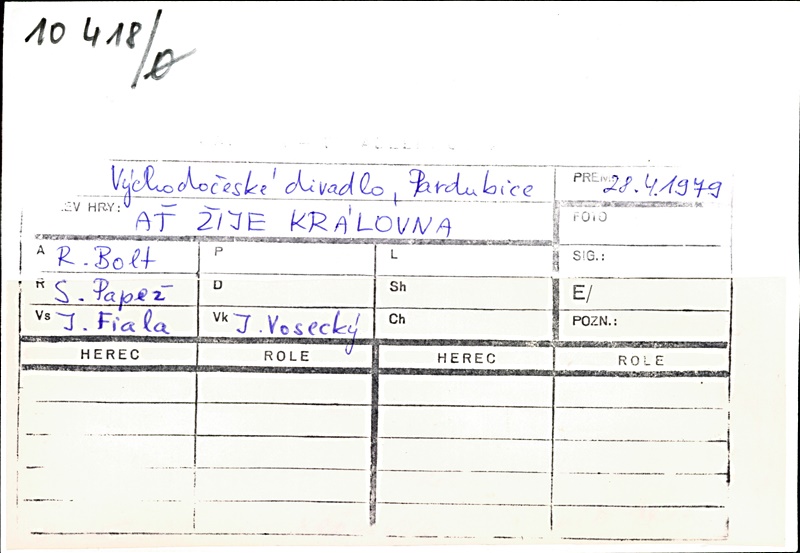 10 418/0
Východočeské divadlo, Pardubice PREM. 28.4.1979
EV HRY: AŤ ŽIJE KRÁLOVNA FOTO
A R. Bolt P L SIG.:
R S. Papež D Sh E/
Vs J. Fiala Vk J. Vosecký Ch POZN.:
HEREC ROLE HEREC ROLE